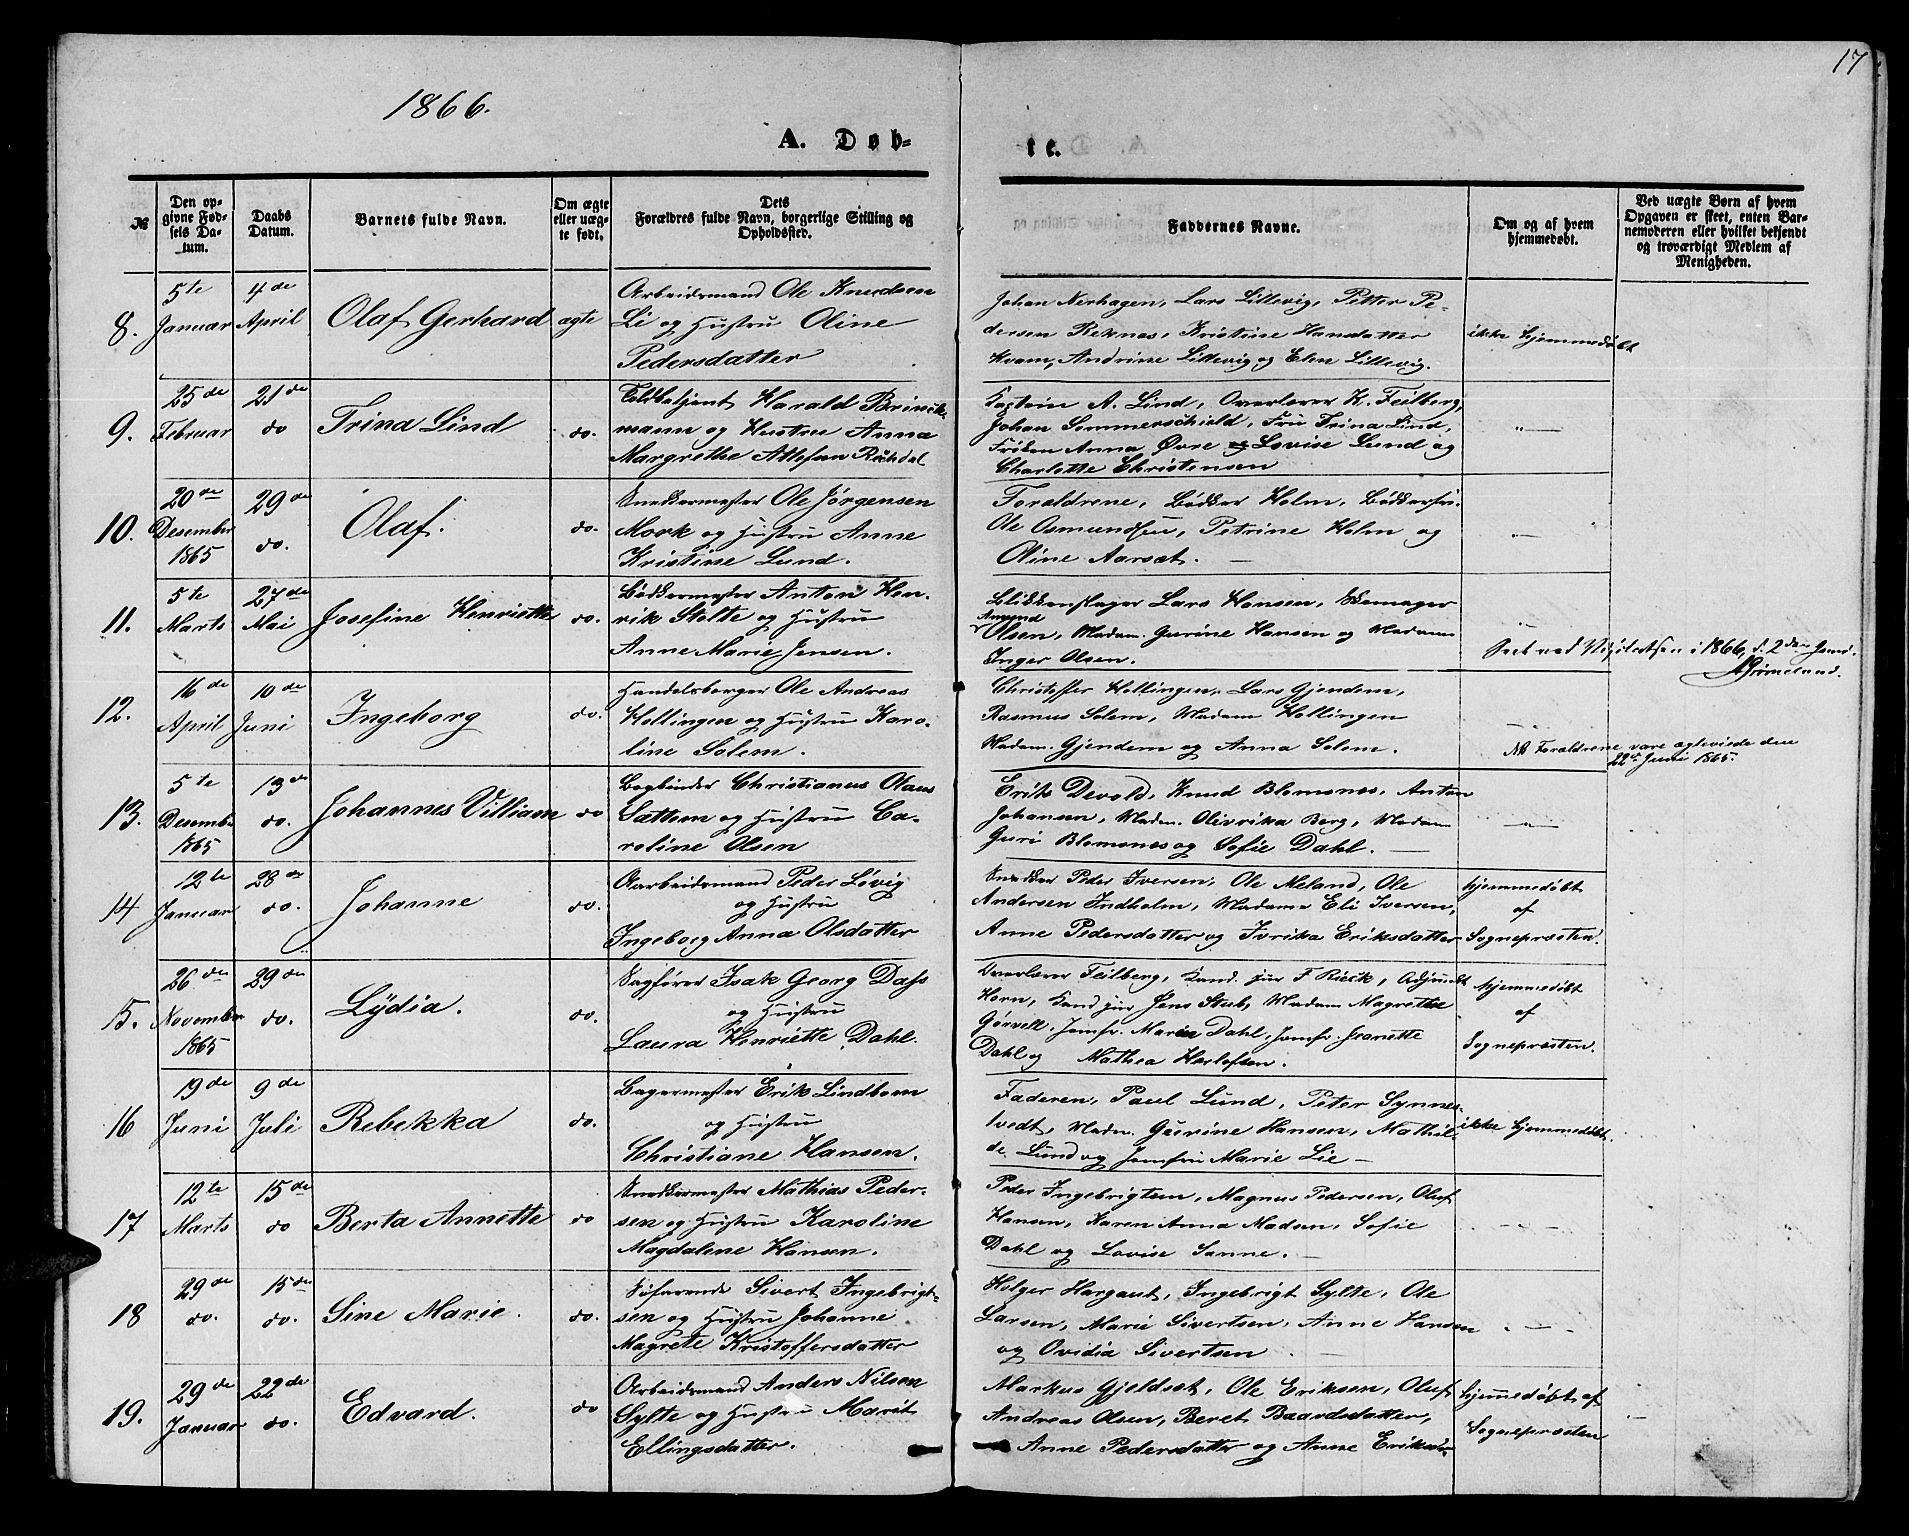 17
1866.
A. Døb-
te.
№
Den op-
givne Fød-
sels Da-
tum.
Daabs
Datum.
Barnets fulde Navn.
Om ægte
eller uæg-
te født.
Dets
Forældres fulde Navn, borgerlige Stilling og
Opholdssted.
Faddernes Navne.
Om og af hvem
hjemmedøbt.
Ved uægte Børn af hvem
Opgaven er skeet, enten Bar-
nemoderen eller hvilket bekjendt
og troværdigt Medlem af
Menigheden.
8.
5te
Januar
4de
April
Olaf Gerhard
ægte
Arbeidsmand Ole Knudsen
Li og Hustru Oline
Pedersdatter
Johan Nerhagen, Lars Lillevig, Petter Pe-
dersen Reknes, Kristine Hansdatter
Kvam, Andrine Lillevig og Elen Lillevig.
ikke hjemmedøbt
9.
25de
Februar
21de
do
Trina Lind
do.
Toldbetjent Harald Brinck-
mann og Hustru Anna
Margrethe Ottesen
Kaptein A. Lind, Overlærer K. Feilberg,
Johan Sommerschield, Fru Trina Lind,
Frøken Anna Øvre og Lovise Lund og
Charlotte Christensen
"—
10.
20de
Desember
1865
29de
do.
Olaf.
do.
Snedkermester Ole Jørgensen
Mork og Hustru Anne
Kristine Lund.
Forældrene, Bødker Holm, Bødkersv.
Ole Osmundsen, Petrine Holm og
Oline Aarsæt. —
"—
11.
5te
Marts
27de
Mai
Josefine Henriette
do.
Bødkermester Anton Hen-
rik Stolte og Hustru
Anne Marie Jensen.
Blikkenslager Lars Hansen, Skomager
Amund
Olsen, Madam. Gurine Hansen og Madam
Inger Olsen.
"
Seet ved Visitatsen i 1866, d. 2den Juni.
12.
16de
April
10de
Juni
Ingeborg
do.
Handelsborger Ole Andreas
Hollingen og Hustru Karo-
line Solem.
Christoffer Hollingen, Lars Gjendem,
Rasmus Solem, Madam Hollingen
Madam. Gjendem og Anna Solem.
"—
NB Forældrene vare ægteviede den
22de Juni 1865.
13.
5te
Desembr
1865
13de
do.
Johannes Villiam
do
Bogbinder Christianus Olaus
Sættem og Hustru Ca-
roline Olsen
Erik Devold, Knud Blomsnes, Anton
Johansen, Madm. Olivrika Berg, Madam
Guri Blomsnes og Sofie Dahl. —
"—
14
12te
Januar
28de
do.
Johanne
do.
Aarbeidsmand Peder Løvig
og Hustru
Ingeborg Anna Olsdatter
Snedker Peder Iversen, Ole Meland, Ole
Andersen Indholm, Madame Eli Iversen,
Anne Pedersdatter og Ivrika Eriksdatter
hjemmedøbt
af
Sognepræsten.
15.
26de
November
1865
29de
do.
Lydia.
do.
Sagfører Isak Georg Dass
og Hustru
Laura Henriette Dahl.
Overlærer Feilberg, Kand. jur F. Rieck, Adjunkt
Horn, Kand jur Jens Stub, Madam Magrethe
Gørvell, Jomfr. Maren Dahl, Jomfr. Jeanette
Dahl og Mathea Harloffsen.
hjemmedøbt
af
Sognepræsten.
16
19de
Juni
9de
Juli
Rebekka
do.
Bagermester Erik Lindbom
og Hustru
Christiane Hansen.
Faderen, Paul Lund, Peter Synnes-
tvedt, Madm. Gurine Hansen, Mathil-
de. Lund og Jomfru Marie Lie —
ikke hjemmedøbt.
17
12te
Marts
15de
do
Berta Annette
do
Snedkermester Mathias Peder-
sen og Hustru Karoline
Magdalene Hansen.
Peder Ingebrigtsen, Magnus Pedersen, Oluf
Hansen, Karen Anna Madsen, Sofie
Dahl og Lovise Sanne. —
"—
18
29de
do.
15de
do.
Sine Marie.
do.
Søfarende Sivert Ingebrigt-
sen og Hustru Johanne
Magrete Kristoffersdatter
Holger Hargaut, Ingebrigt Sylte, Ole
Larsen, Marie Sivertsen, Anne Hansen
og Ovidia Sivertsen —
"—
19.
29de
Januar
22de
do.
Edvard.
do
Arbeidsmand Anders Nilsen
Sylte og Hustru Marit
Ellingsdatter.
Markus Gjeldsæt, Ole Eriksen, Oluf
Andreas Olsen, Beret Baardsdatter,
Anne Pedersdatter og Anne Eriksdr
hjemmedøbt af
Sognepræsten